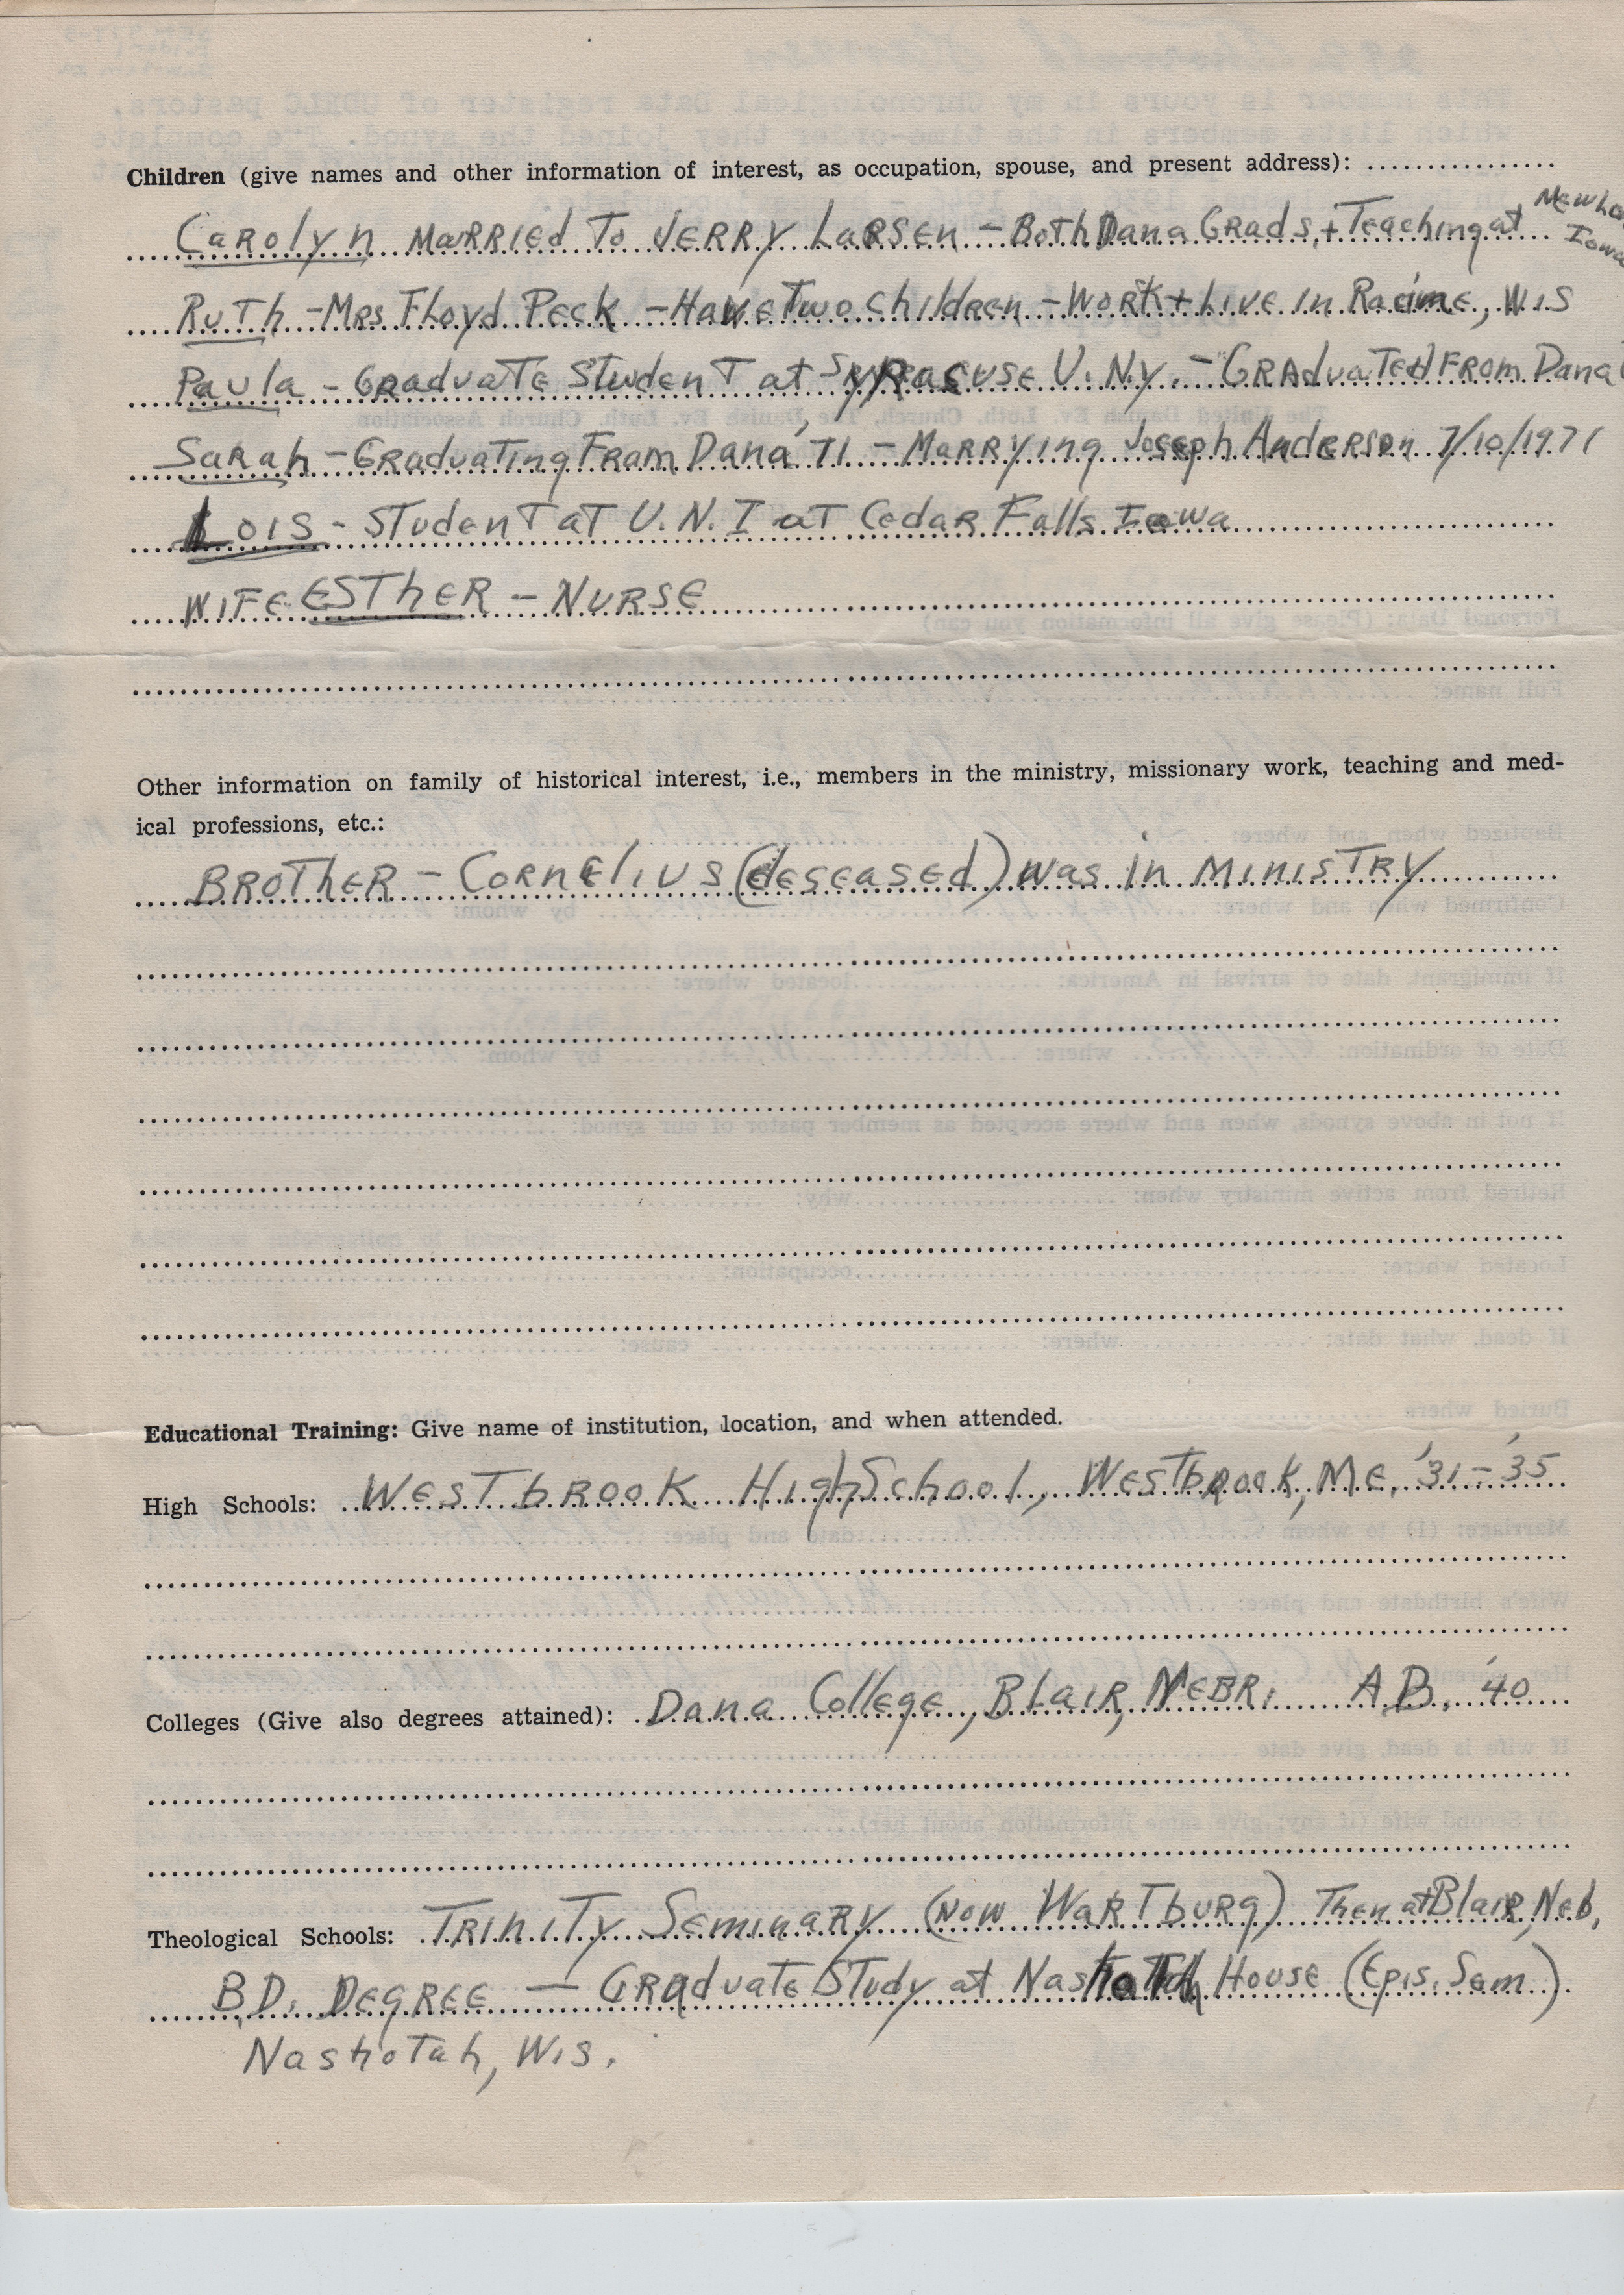 Children (give names and other information of interest, as occupation, spouse, and present address):
Carolyn Married To Jerry Larsen - Both Dana Grads, + Teaching at
Iowa
Ruth - Mrs Floyd Peck - Have Two children - Work + Live in Racine, Wis
Paula - Graduate Student at Syracuse U. N.Y. - Graduated From Dana
Sarah - Graduating From Dana '71 - Marrying Joseph Anderson 7/10/1971
Lois - Student at U.N.I at Cedar Falls Iowa
Wife Esther - Nurse
Other information on family of historical interest, i.e., members in the ministry, missionary work, teaching and med-
ical professions, etc.:
Brother - Cornelius (deseased) was in Ministry
Educational Training: Give name of institution, location, and when attended.
High Schools: Westbrook High School, Westbrook, Me. '31 - '35
Colleges (Give also degrees attained): Dana College, Blair, Nebr. A.B. '40
Theological Schools: Trinity Seminary (now Wartburg) Then at Blair, Neb,
B.D. Degree - Graduate Study at Nashotah House (Epis. Sem.)
Nashotah, Wis.